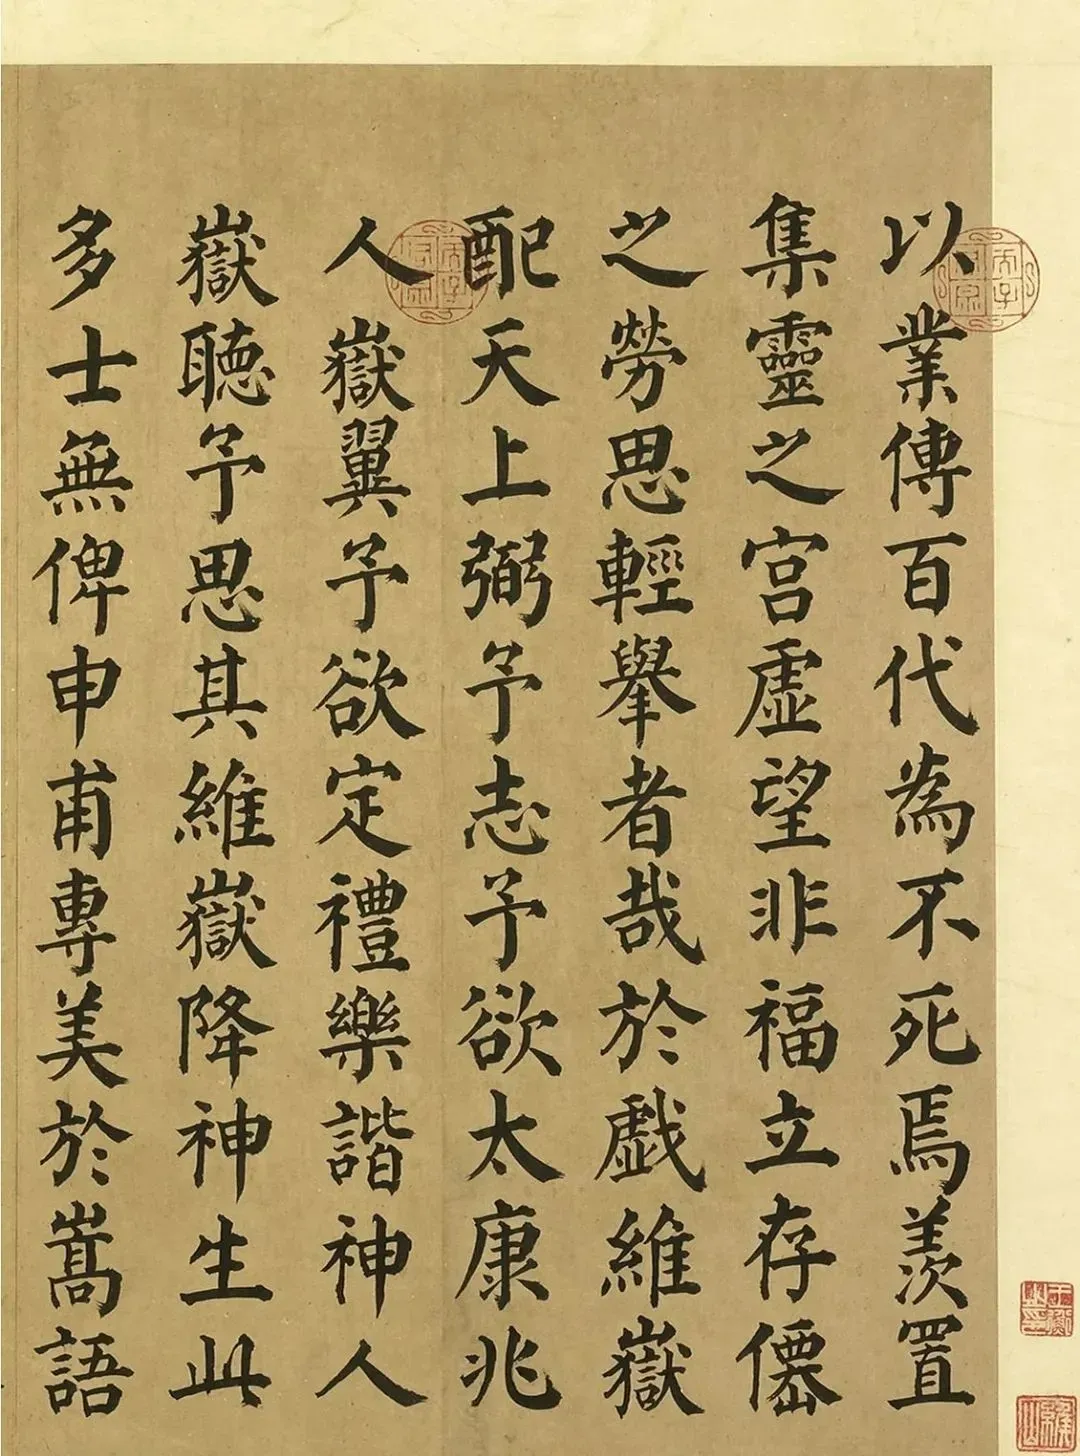 以業傳百代為不死焉羨置
集靈之宮虛望非福立存僊
之勞思輕舉者哉於戲維嶽
配天上弼予志予欲太康兆
人嶽翼予欲定禮樂諧神人
嶽聽予思其維嶽降神生此
多士無俾申甫專美於嵩語